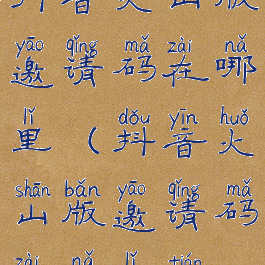 yāo qǐng mǎ zài nǎ
邀请码在哪
lǐ dǒu yīn huǒ
里（抖音火
shān bǎn yāo qǐng mǎ
山版邀请码
zài nǎ lǐ tián